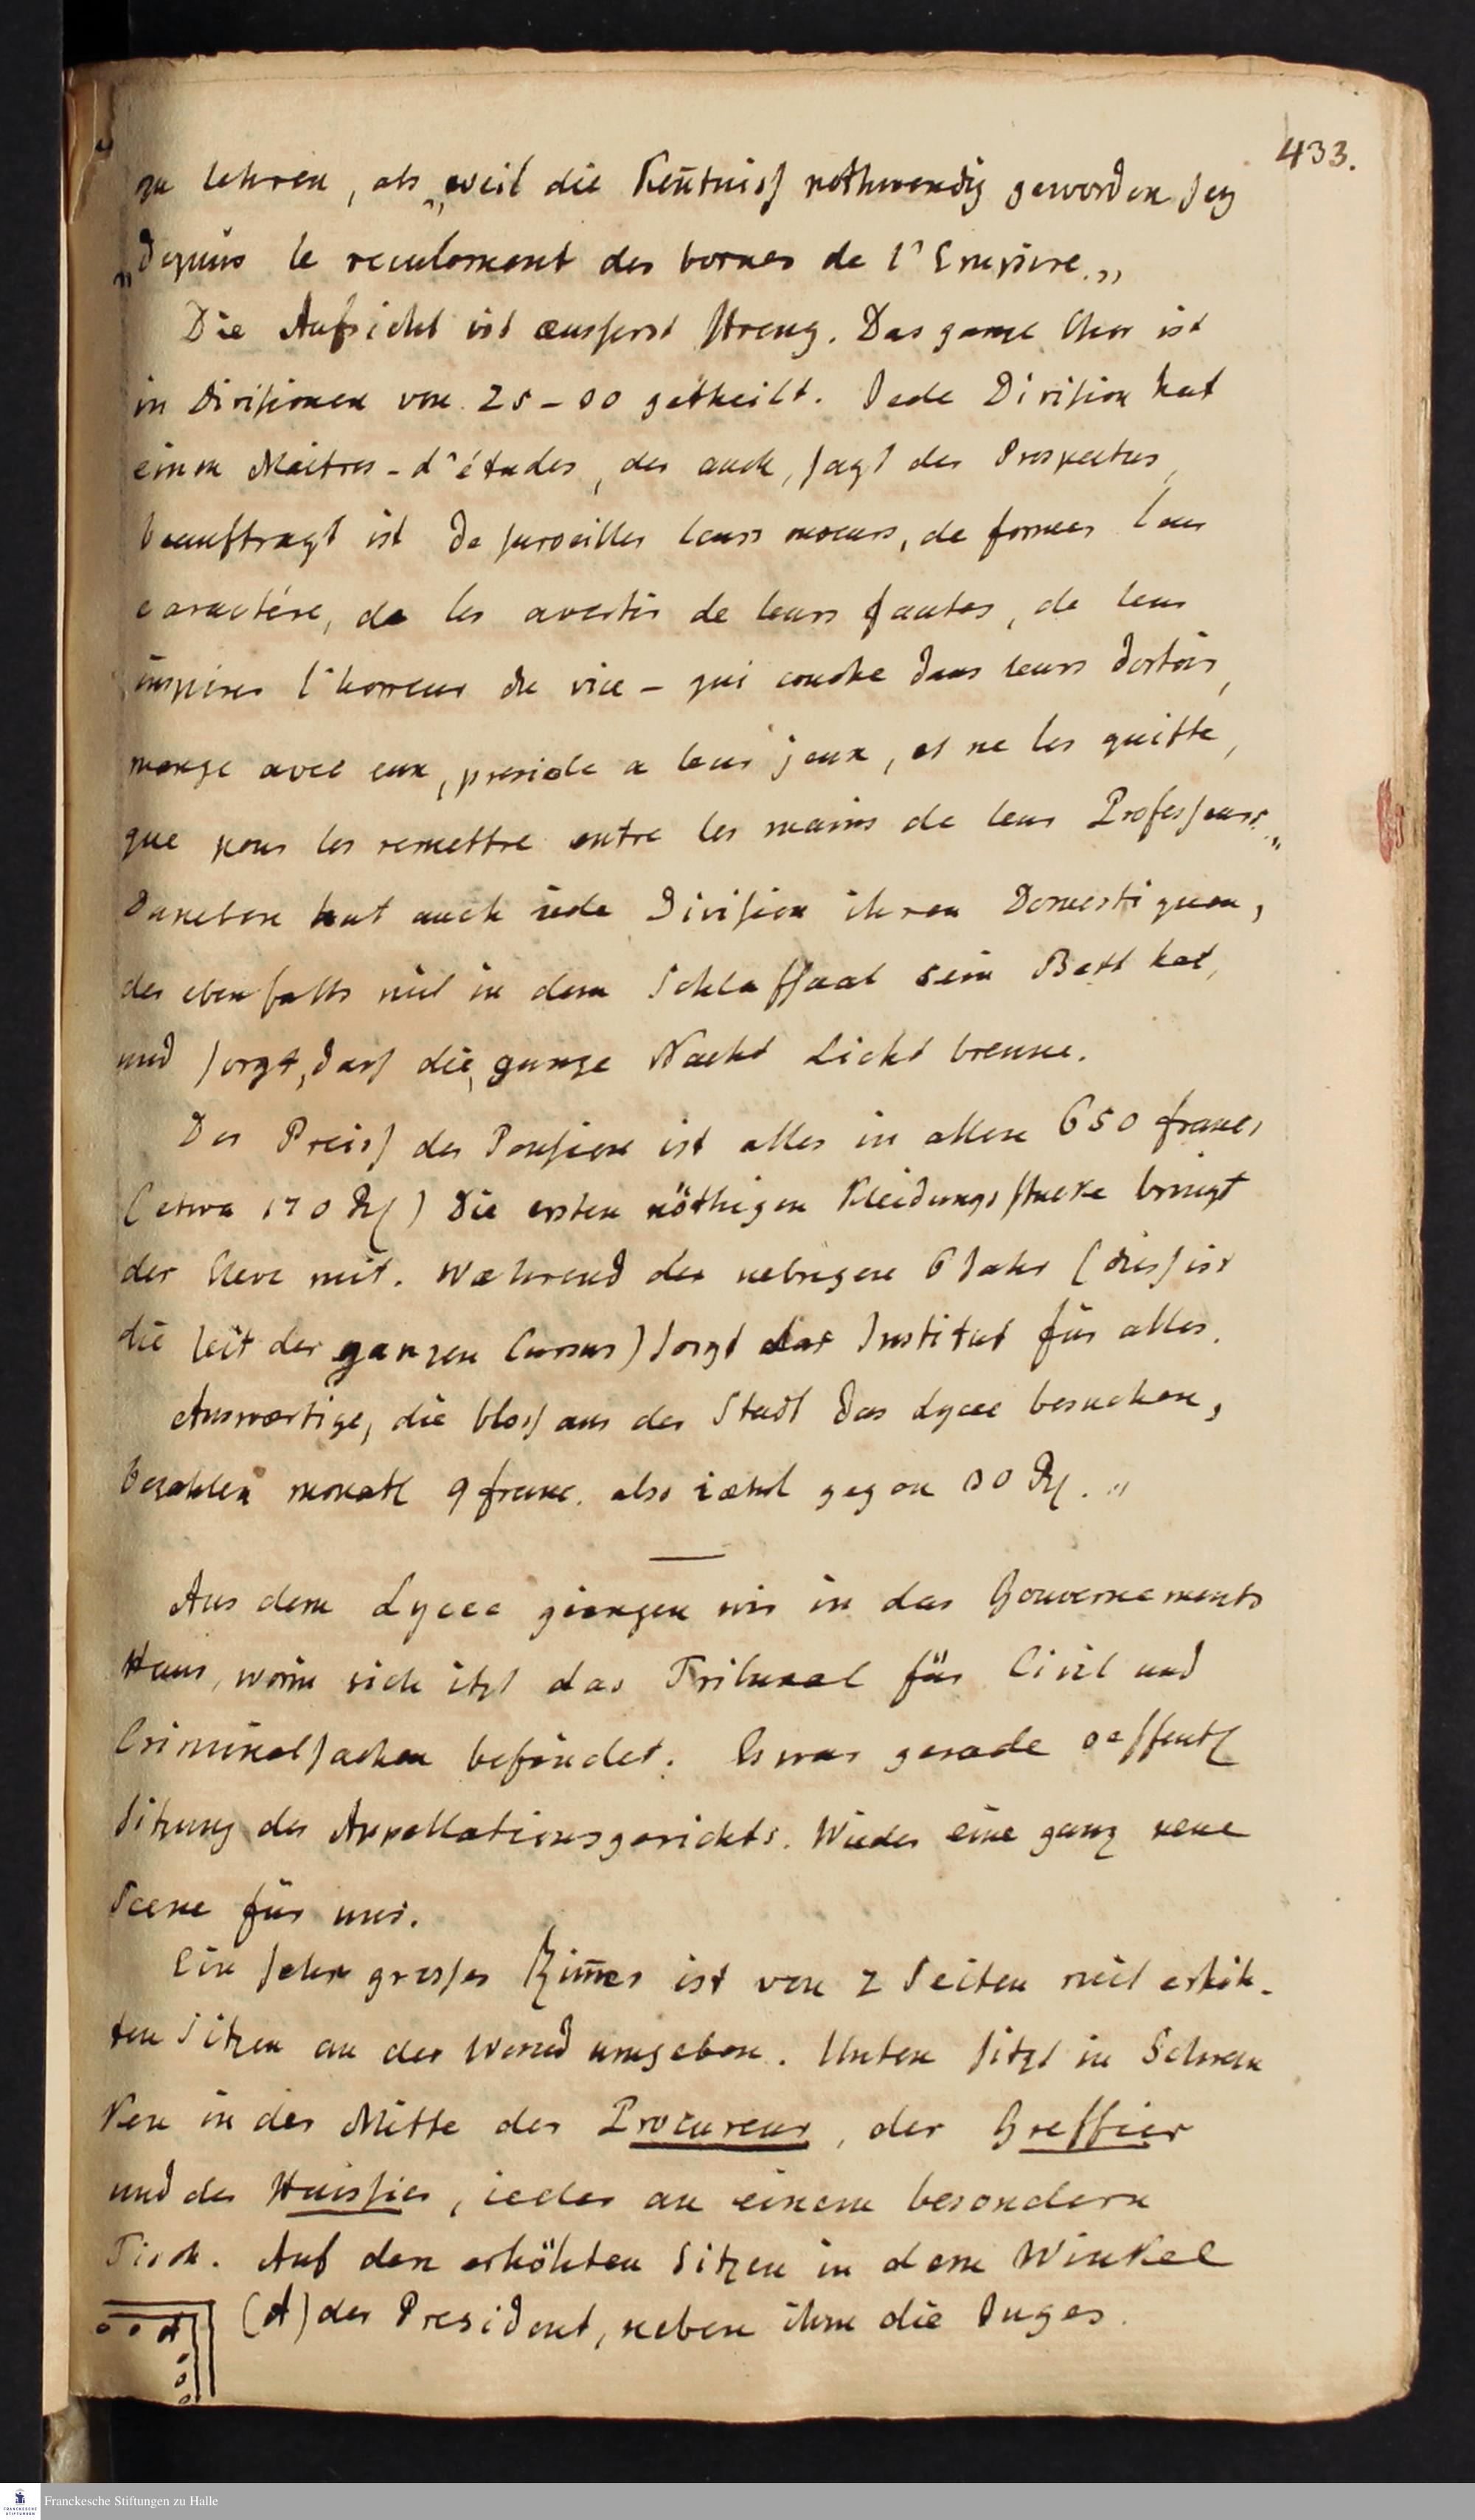 433.
zu lehren, als „weil die Keñtniss nothwendig geworden sey
„depuis le reculement des bornes de l'Empire.„
Die Aufsicht ist æusserst streng. Das ganze Chor ist
in Divisionen von 25-30 getheilt. Jede Division hat
einen Maitres-d'études, der auch, sagt der Prospectus,
beauftragt ist de surveiller leurs moeurs, de former leur
caractére, de les avertir de leurs fautes, de leur
inspirer l'horreur du vice - qui couche dans leurs dortoirs,
mange avec eux, preside a leur jeux, et ne les quitte,
que pour les remettre entre les mains de leur Professeurs.„
Daneben hat auch iede Division ihren Domestiquen,
der ebenfalls mit in dem Schlafsaal sein Bett hat,
und sorgt, dass die ganze Nacht Licht brenne.
Der Preiss der Pension ist alles in allem 650 francs
(etwa 170 Rthl) Die ersten nöthigen Kleidungsstucke bringt
der Eleve mit. Wæhrend der uebrigen 6 Jahr (dies ist
die Zeit der ganzen Cursus) sorgt das Institut für alles.
Auswærtige, die bloss aus der Stadt das Lycee besuchen,
bezahlen monatl 9 franc. also iæhrl gegen 30 Rthl. „
Aus dem Lycee giengen wir in das Gouvernements
Haus, worin sich itzt das Tribunal für Civil und
Criminalsachen befindet. Es war gerade oeffentl
Sitzung des Appellationsgerichts. Wieder eine ganz neue
Scene für uns.
Ein sehr grosses Zim̃er ist von 2 Seiten mit erhöh-
ten Sitzen an der Wand umgeben. Unten sitzt in Schran
ken in der Mitte der Procureur, der Greffier
und der Huissier, ieder an einem besondern
Tisch. Auf den erhöhten Sitzen in dem Winkel
(A) der President, neben ihm die Juges.
A
Franckesche Stiftungen zu Halle